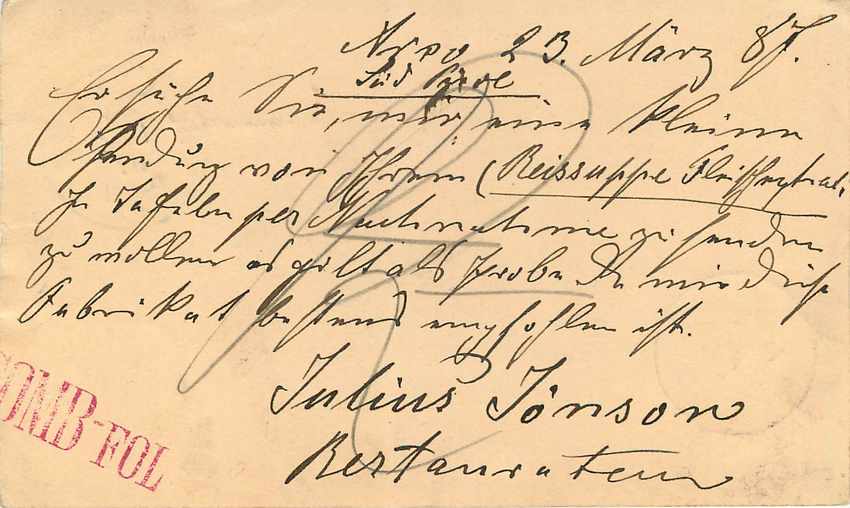 Arco 23. März 87.
Süd Tirol
Ersuche Sie, mir eine kleine
Sendung von Ihrem (Reissuppe Fleischextrat,
In Tafeln per Nachnahme zu senden
zu wollen es gilt als Probe Da mir diese
Fabrikat bestens empfohlen ist.
Julius Jönson
Restaurateur
COMB-FOL